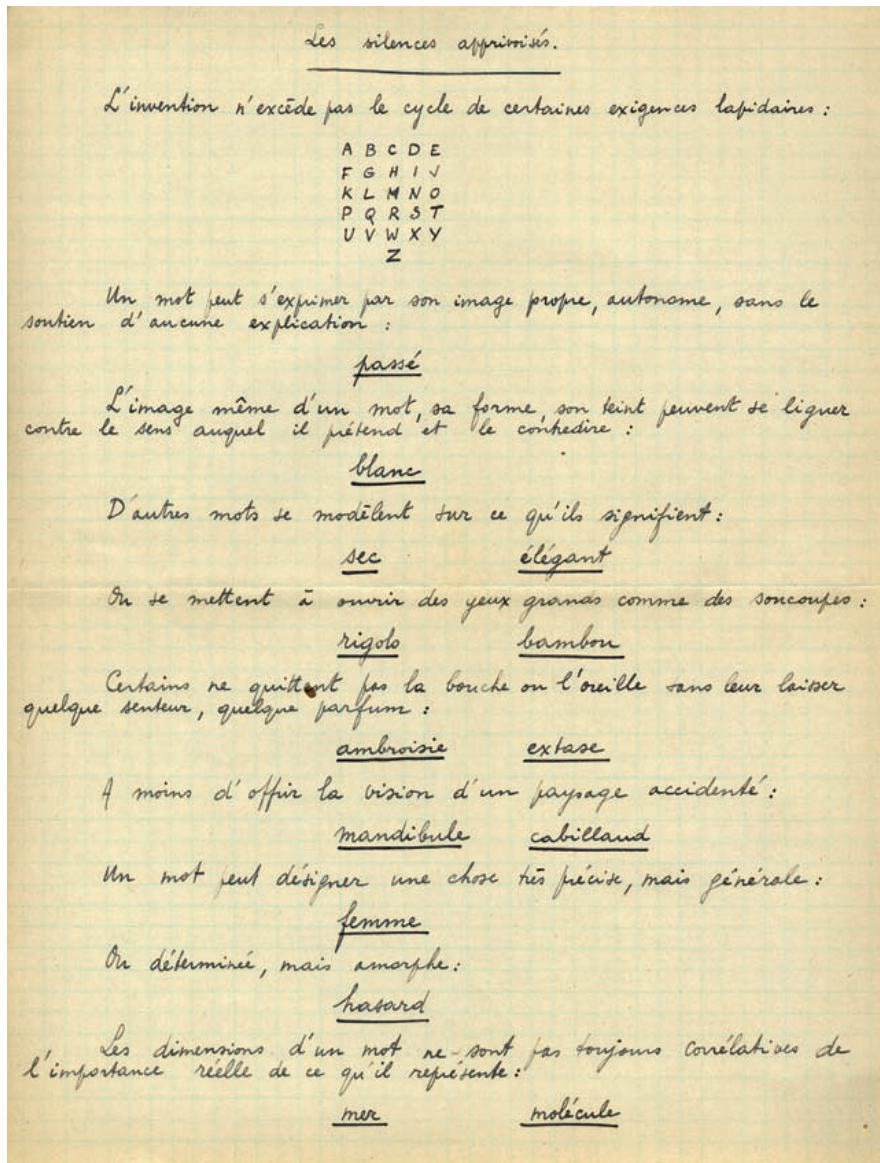 Les silences apprivoisés.
L'invention n'excède pas le cycle de certaines exigences lapidaires :
A B C D E
F G H I J
K L M N O
P Q R S T
U V W X Y
Z
Un mot peut s'exprimer par son image propre, autonome, sans le
soutien d'aucune explication :
passé
L'image même d'un mot, sa forme, son teint peuvent se liguer
contre le sens auquel il prétend et le contredire :
blanc
D'autres mots se modèlent sur ce qu'ils signifient :
sec élégant
Ou se mettent à ouvrir des yeux grands comme des soucoupes :
rigolo bambou
Certains ne quittent pas la bouche ou l'oreille sans leur laisser
quelque senteur, quelque parfum :
ambroisie extase
A moins d'offrir la vision d'un paysage accidenté :
mandibule cabillaud
Un mot peut désigner une chose très précise, mais générale :
femme
Ou déterminée, mais amorphe :
hasard
Les dimensions d'un mot ne sont pas toujours corrélatives de
l'importance réelle de ce qu'il représente :
mer molécule